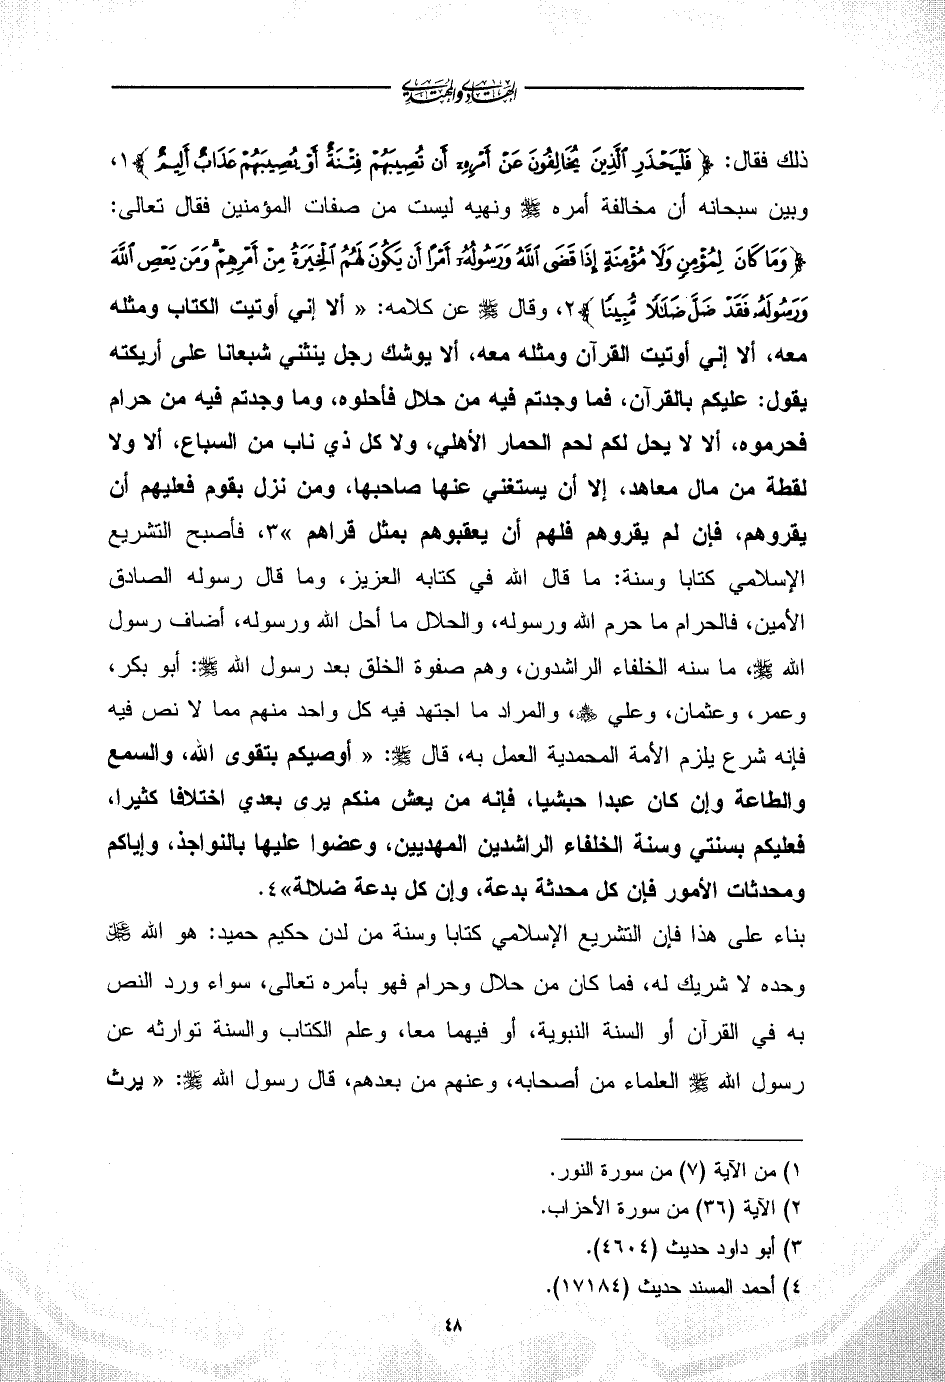 الهادي والمهتدي
ذلك فقال: ﴿ فَلْيَحْذَرِ ٱلَّذِينَ يُخَالِفُونَ عَنْ أَمْرِهِۦٓ أَن تُصِيبَهُمْ فِتْنَةٌ أَوْ يُصِيبَهُمْ عَذَابٌ أَلِيمٌ ﴾١،
وبين سبحانه أن مخالفة أمره ﷺ ونهيه ليست من صفات المؤمنين فقال تعالى:
﴿ وَمَا كَانَ لِمُؤْمِنٍ وَلَا مُؤْمِنَةٍ إِذَا قَضَى ٱللَّهُ وَرَسُولُهُۥٓ أَمْرًا أَن يَكُونَ لَهُمُ ٱلْخِيَرَةُ مِنْ أَمْرِهِمْ ۗ وَمَن يَعْصِ ٱللَّهَ
وَرَسُولَهُۥ فَقَدْ ضَلَّ ضَلَٰلًا مُّبِينًا ﴾٢، وقال ﷺ عن كلامه: « ألا إني أوتيت الكتاب ومثله
معه، ألا إني أوتيت القرآن ومثله معه، ألا يوشك رجل ينثني شبعانا على أريكته
يقول: عليكم بالقرآن، فما وجدتم فيه من حلال فأحلوه، وما وجدتم فيه من حرام
فحرموه، ألا لا يحل لكم لحم الحمار الأهلي، ولا كل ذي ناب من السباع، ألا ولا
لقطة من مال معاهد، إلا أن يستغني عنها صاحبها، ومن نزل بقوم فعليهم أن
يقروهم، فإن لم يقروهم فلهم أن يعقبوهم بمثل قراهم »٣، فأصبح التشريع
الإسلامي كتابا وسنة: ما قال الله في كتابه العزيز، وما قال رسوله الصادق
الأمين، فالحرام ما حرم الله ورسوله، والحلال ما أحل الله ورسوله، أضاف رسول
الله ﷺ، ما سنه الخلفاء الراشدون، وهم صفوة الخلق بعد رسول الله ﷺ: أبو بكر،
وعمر، وعثمان، وعلي ﷺ، والمراد ما اجتهد فيه كل واحد منهم مما لا نص فيه
فإنه شرع يلزم الأمة المحمدية العمل به، قال ﷺ: « أوصيكم بتقوى الله، والسمع
والطاعة وإن كان عبدا حبشيا، فإنه من يعش منكم يرى بعدي اختلافا كثيرا،
فعليكم بسنتي وسنة الخلفاء الراشدين المهديين، وعضوا عليها بالنواجذ، وإياكم
ومحدثات الأمور فإن كل محدثة بدعة، وإن كل بدعة ضلالة»٤.
بناء على هذا فإن التشريع الإسلامي كتابا وسنة من لدن حكيم حميد: هو الله ﷻ
وحده لا شريك له، فما كان من حلال وحرام فهو بأمره تعالى، سواء ورد النص
به في القرآن أو السنة النبوية، أو فيهما معا، وعلم الكتاب والسنة توارثه عن
رسول الله ﷺ العلماء من أصحابه، وعنهم من بعدهم، قال رسول الله ﷺ: « يرث
١) من الآية (٧) من سورة النور.
٢) الآية (٣٦) من سورة الأحزاب.
٣) أبو داود حديث (٤٦٠٤).
٤) أحمد المسند حديث (١٧١٨٤).
٤٨